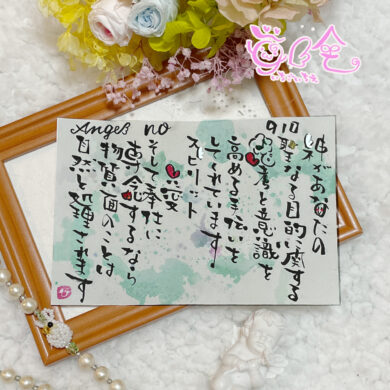 Angel no 910
神があなたの
聖なる目的に対する
思考と意識を
高める手伝いを
してくれています。
スピリット
愛
そして奉仕に
専念するなら
物質面のことは
自然と されます